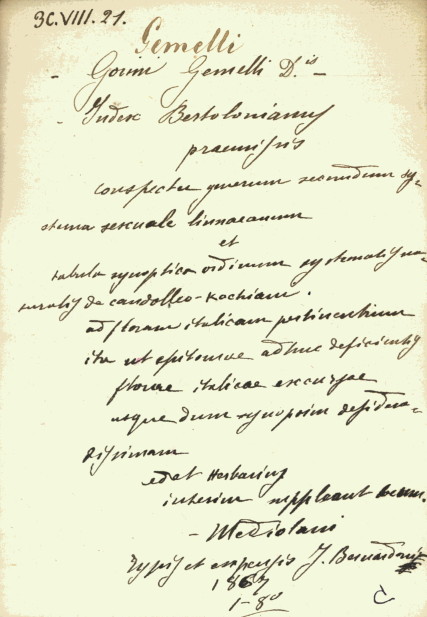 3C.VIII.21.
Gemelli
- Gorini Gemelli D.is -
- Index Bertolonianus
praemissis
conspectu generum secundum sy-
stema sexuale linnaeanum
et
tabula synoptica ordinum systematis na-
turalis de candolleo-kochiani.
ad floram italicam pertinentium
ita ut epitomae adhuc deficientis
florae italicae excursae
usque dum synopsim desidera-
tissimam
edat Herbarius
interim suppleant
- Mediolani
Typis et expensis J. Bernardoni
1867
1-8o